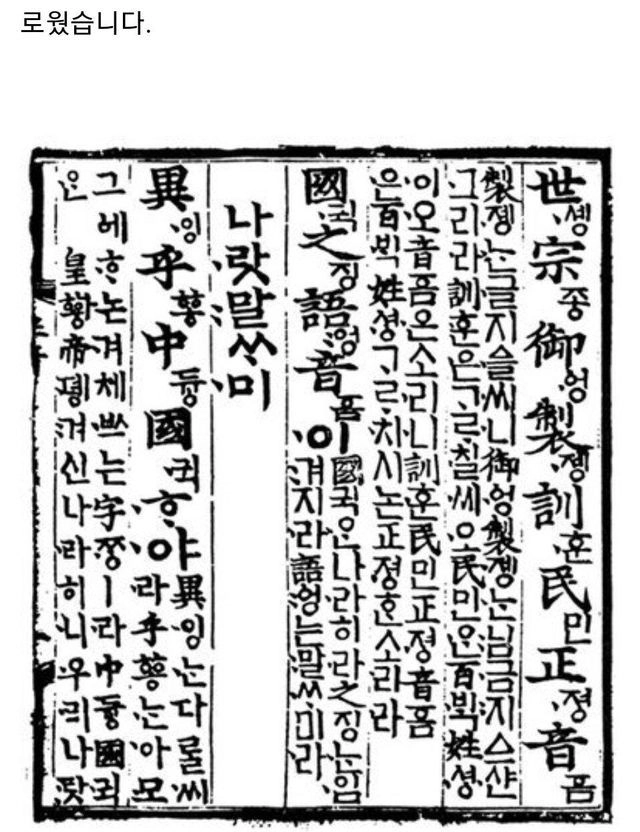 로웠습니다.
世솅〮宗조ᇰ御ᅌᅥᆼ〮製졩〮訓훈〮民민正져ᇰ〮音ᅙᅳᆷ
製졩〮는〮글〮지ᅀᅳᆯ〮씨니〮御ᅌᅥᆼ〮製졩〮는〮님〯금〮지ᅀᅳ샨〮
그〮리라〮訓훈〮은〮ᄀᆞᄅᆞ칠〮씨오〮民민ᄋᆞᆫ〮百ᄇᆡᆨ〮姓셔ᇰ〮
이오〮音ᅙᅳᆷ은〮소리니〮訓훈〮民민正져ᇰ〮音ᅙᅳᆷ
은〮百ᄇᆡᆨ〮姓셔ᇰ〮ᄀᆞᄅᆞ치시〮논〮正져ᇰ〮ᄒᆞᆫ〮소리라〮
國귁〮之징語ᅌᅥᆼ〯音ᅙᅳᆷ이〮
國귁〮ᄋᆞᆫ〮나라히〮라〮之징ᄂᆞᆫ〮입〮
겨지라〮語ᅌᅥᆼ〯는〮말〯ᄊᆞ미〮라〮
나랏〮말〯ᄊᆞ미〮
異잉〮乎ᅘᅩᆼ中듀ᇰ國귁〮ᄒᆞ〮야〮
異잉〮ᄂᆞᆫ〮다ᄅᆞᆯ〮씨
라〮乎ᅘᅩᆼᄂᆞᆫ〮아〯모〮
그ᅌᅦ〮ᄒᆞ논〮겨체〮ᄡᅳ는〮字ᄍᆞᆼ〮ㅣ라〮中듀ᇰ國귁〮
ᄋᆞᆫ〮皇ᅘᅪᇰ帝뎽〮겨신〮나라히〮니〮우리〮나랏〮